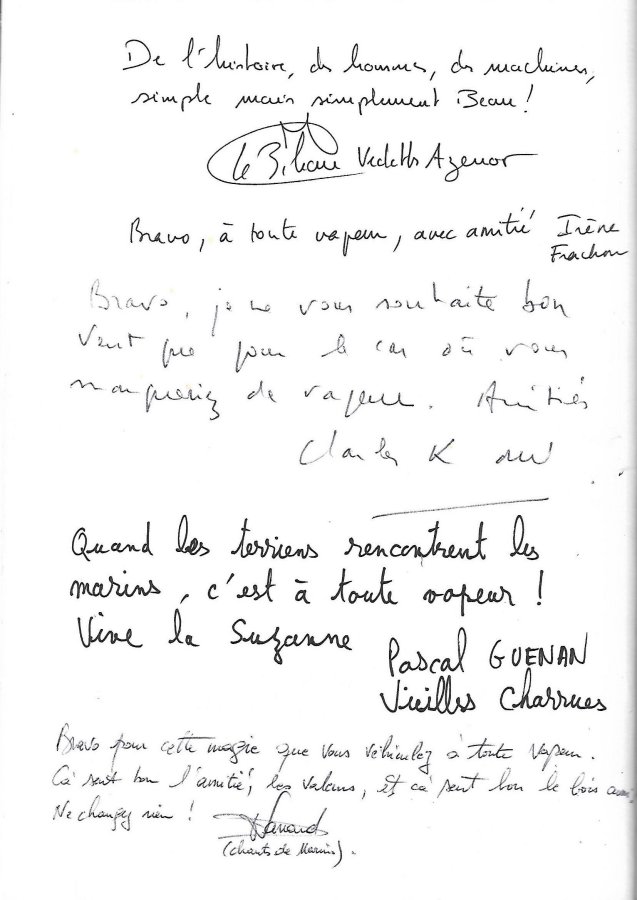 De l'histoire, des hommes, des machines,
simple mais simplement Beau !
Le Bihan Vedettes Azenor
Bravo, à toute vapeur, avec amitié Irène
Frachon
Bravo, je ne vous souhaite bon
vent que pour le cas où vous
manqueriez de vapeur. Amitiés
Charles K
Quand les terriens rencontrent les
marins, c'est à toute vapeur !
Vive la Suzanne
Pascal GUENAN
Vieilles Charrues
Bravo pour cette magie que vous véhiculez à toute vapeur.
Ca sent bon l'amitié, les valeurs, et ca sent bon le bois aussi.
Ne changez rien !
(Chants de Marins).